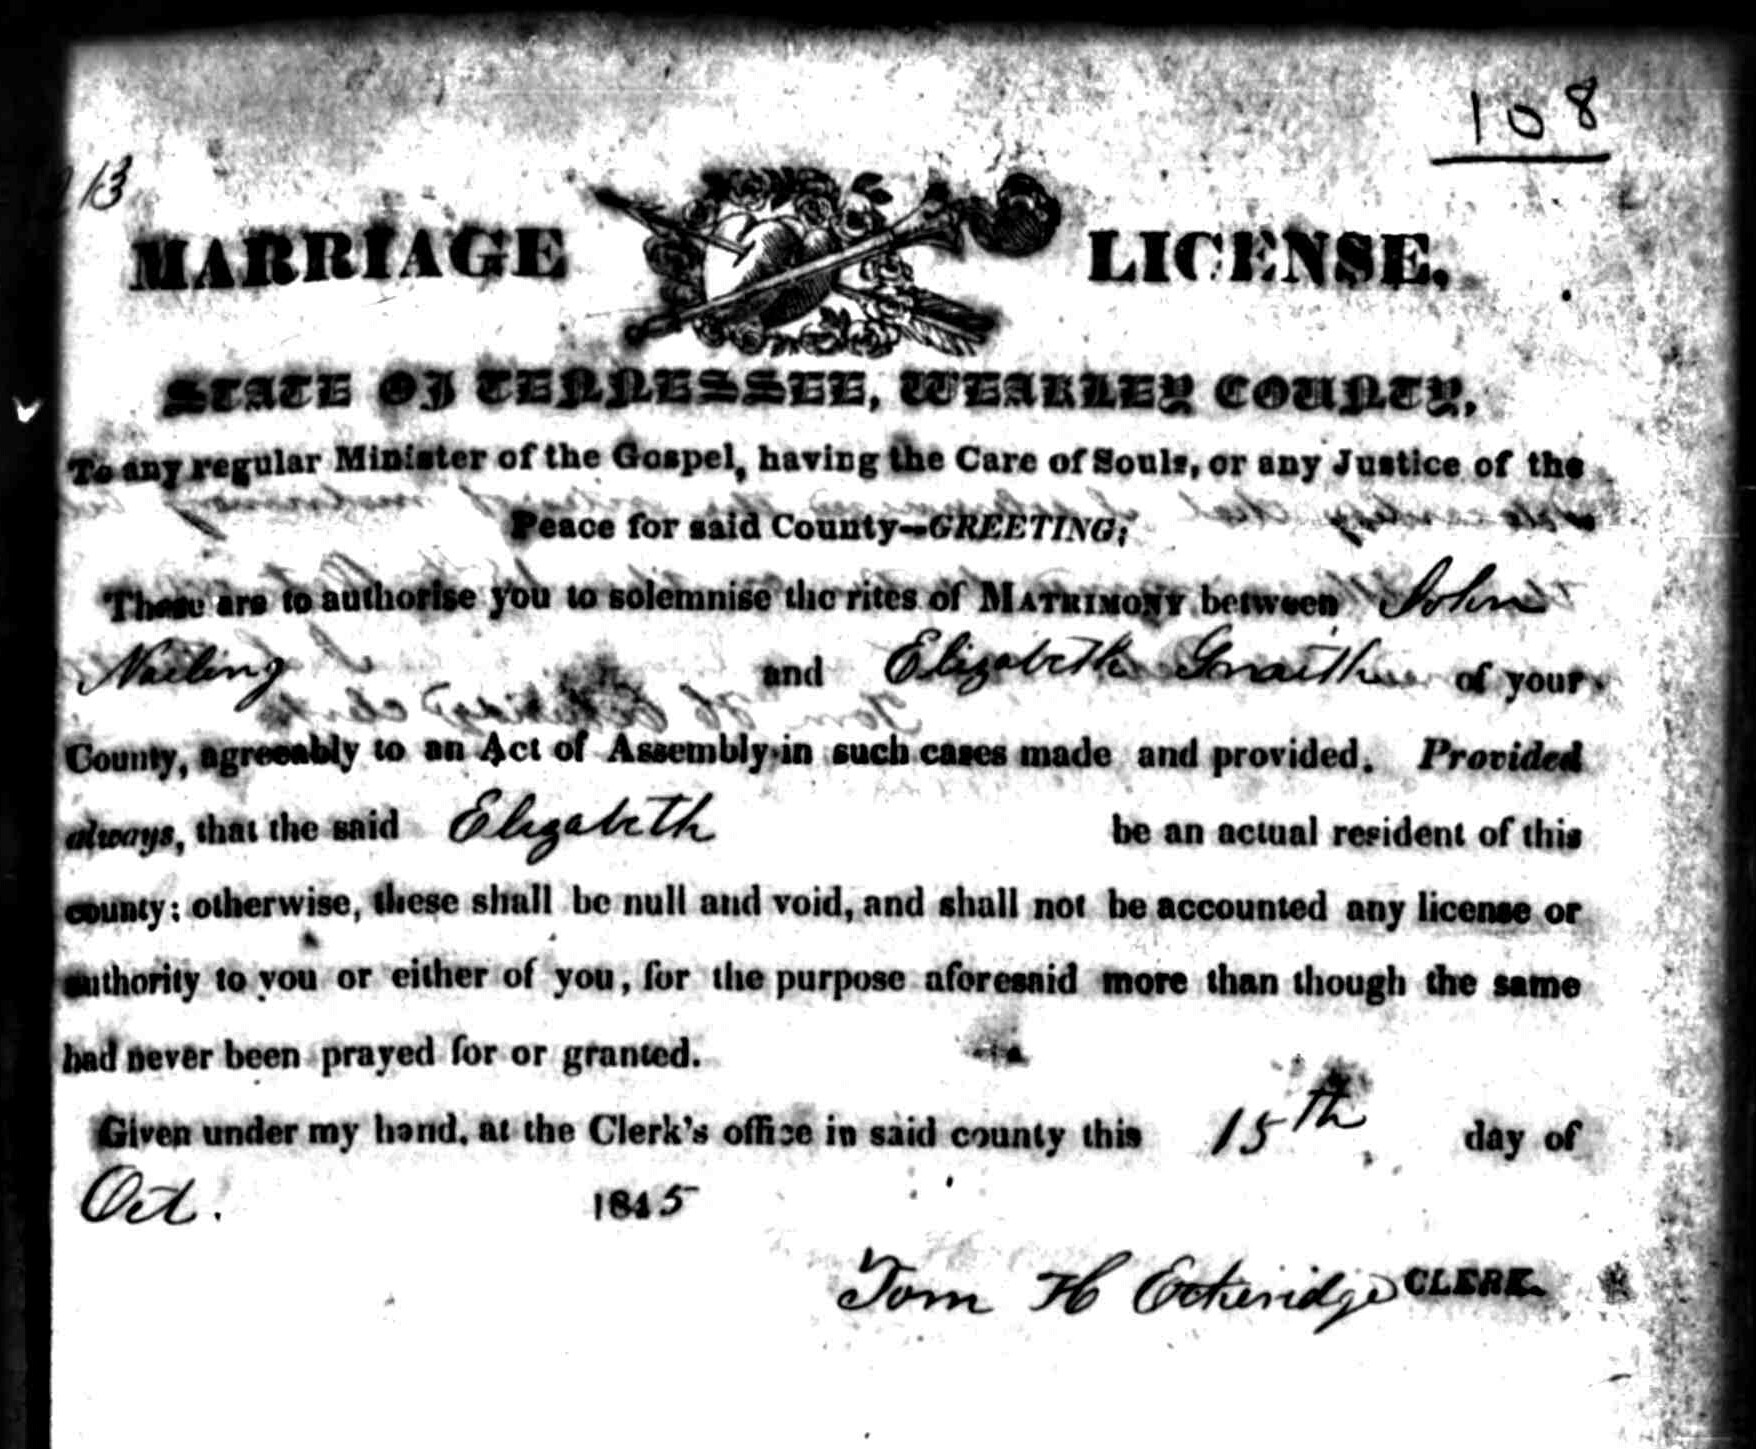 108
113
MARRIAGE LICENSE.
STATE OF TENNESSEE, WEAKLEY COUNTY.
To any regular Minister of the Gospel, having the Care of Souls, or any Justice of the
Peace for said County—GREETING;
These are to authorise you to solemnise the rites of MATRIMONY between John
Nailing and Elizabeth of your
County, agreeably to an Act of Assembly in such cases made and provided. Provided
always, that the said Elizabeth be an actual resident of this
county; otherwise, these shall be null and void, and shall not be accounted any license or
authority to you or either of you, for the purpose aforesaid more than though the same
had never been prayed for or granted.
Given under my hand, at the Clerk's office in said county this 15th day of
Oct. 1845
Tom H Etheridge CLERK.